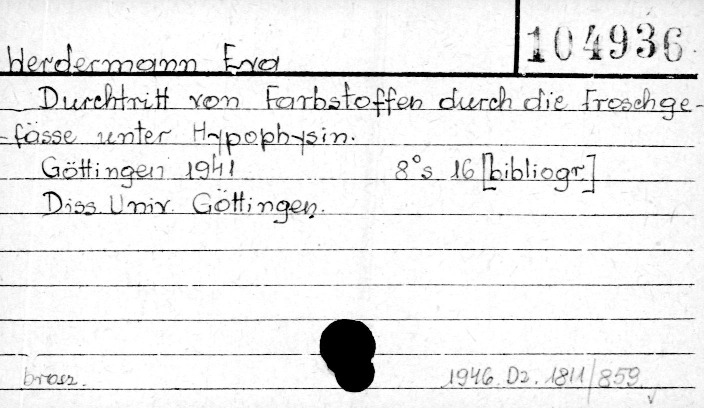 104936
Werdermann Eva
Durchtritt von Farbstoffen durch die Froschge-
fässe unter Hypophysin.
Göttingen 1941 8°s 16 [bibliogr]
Diss. Univ. Göttingen.
brosz.
1946. Dz. 1811/859